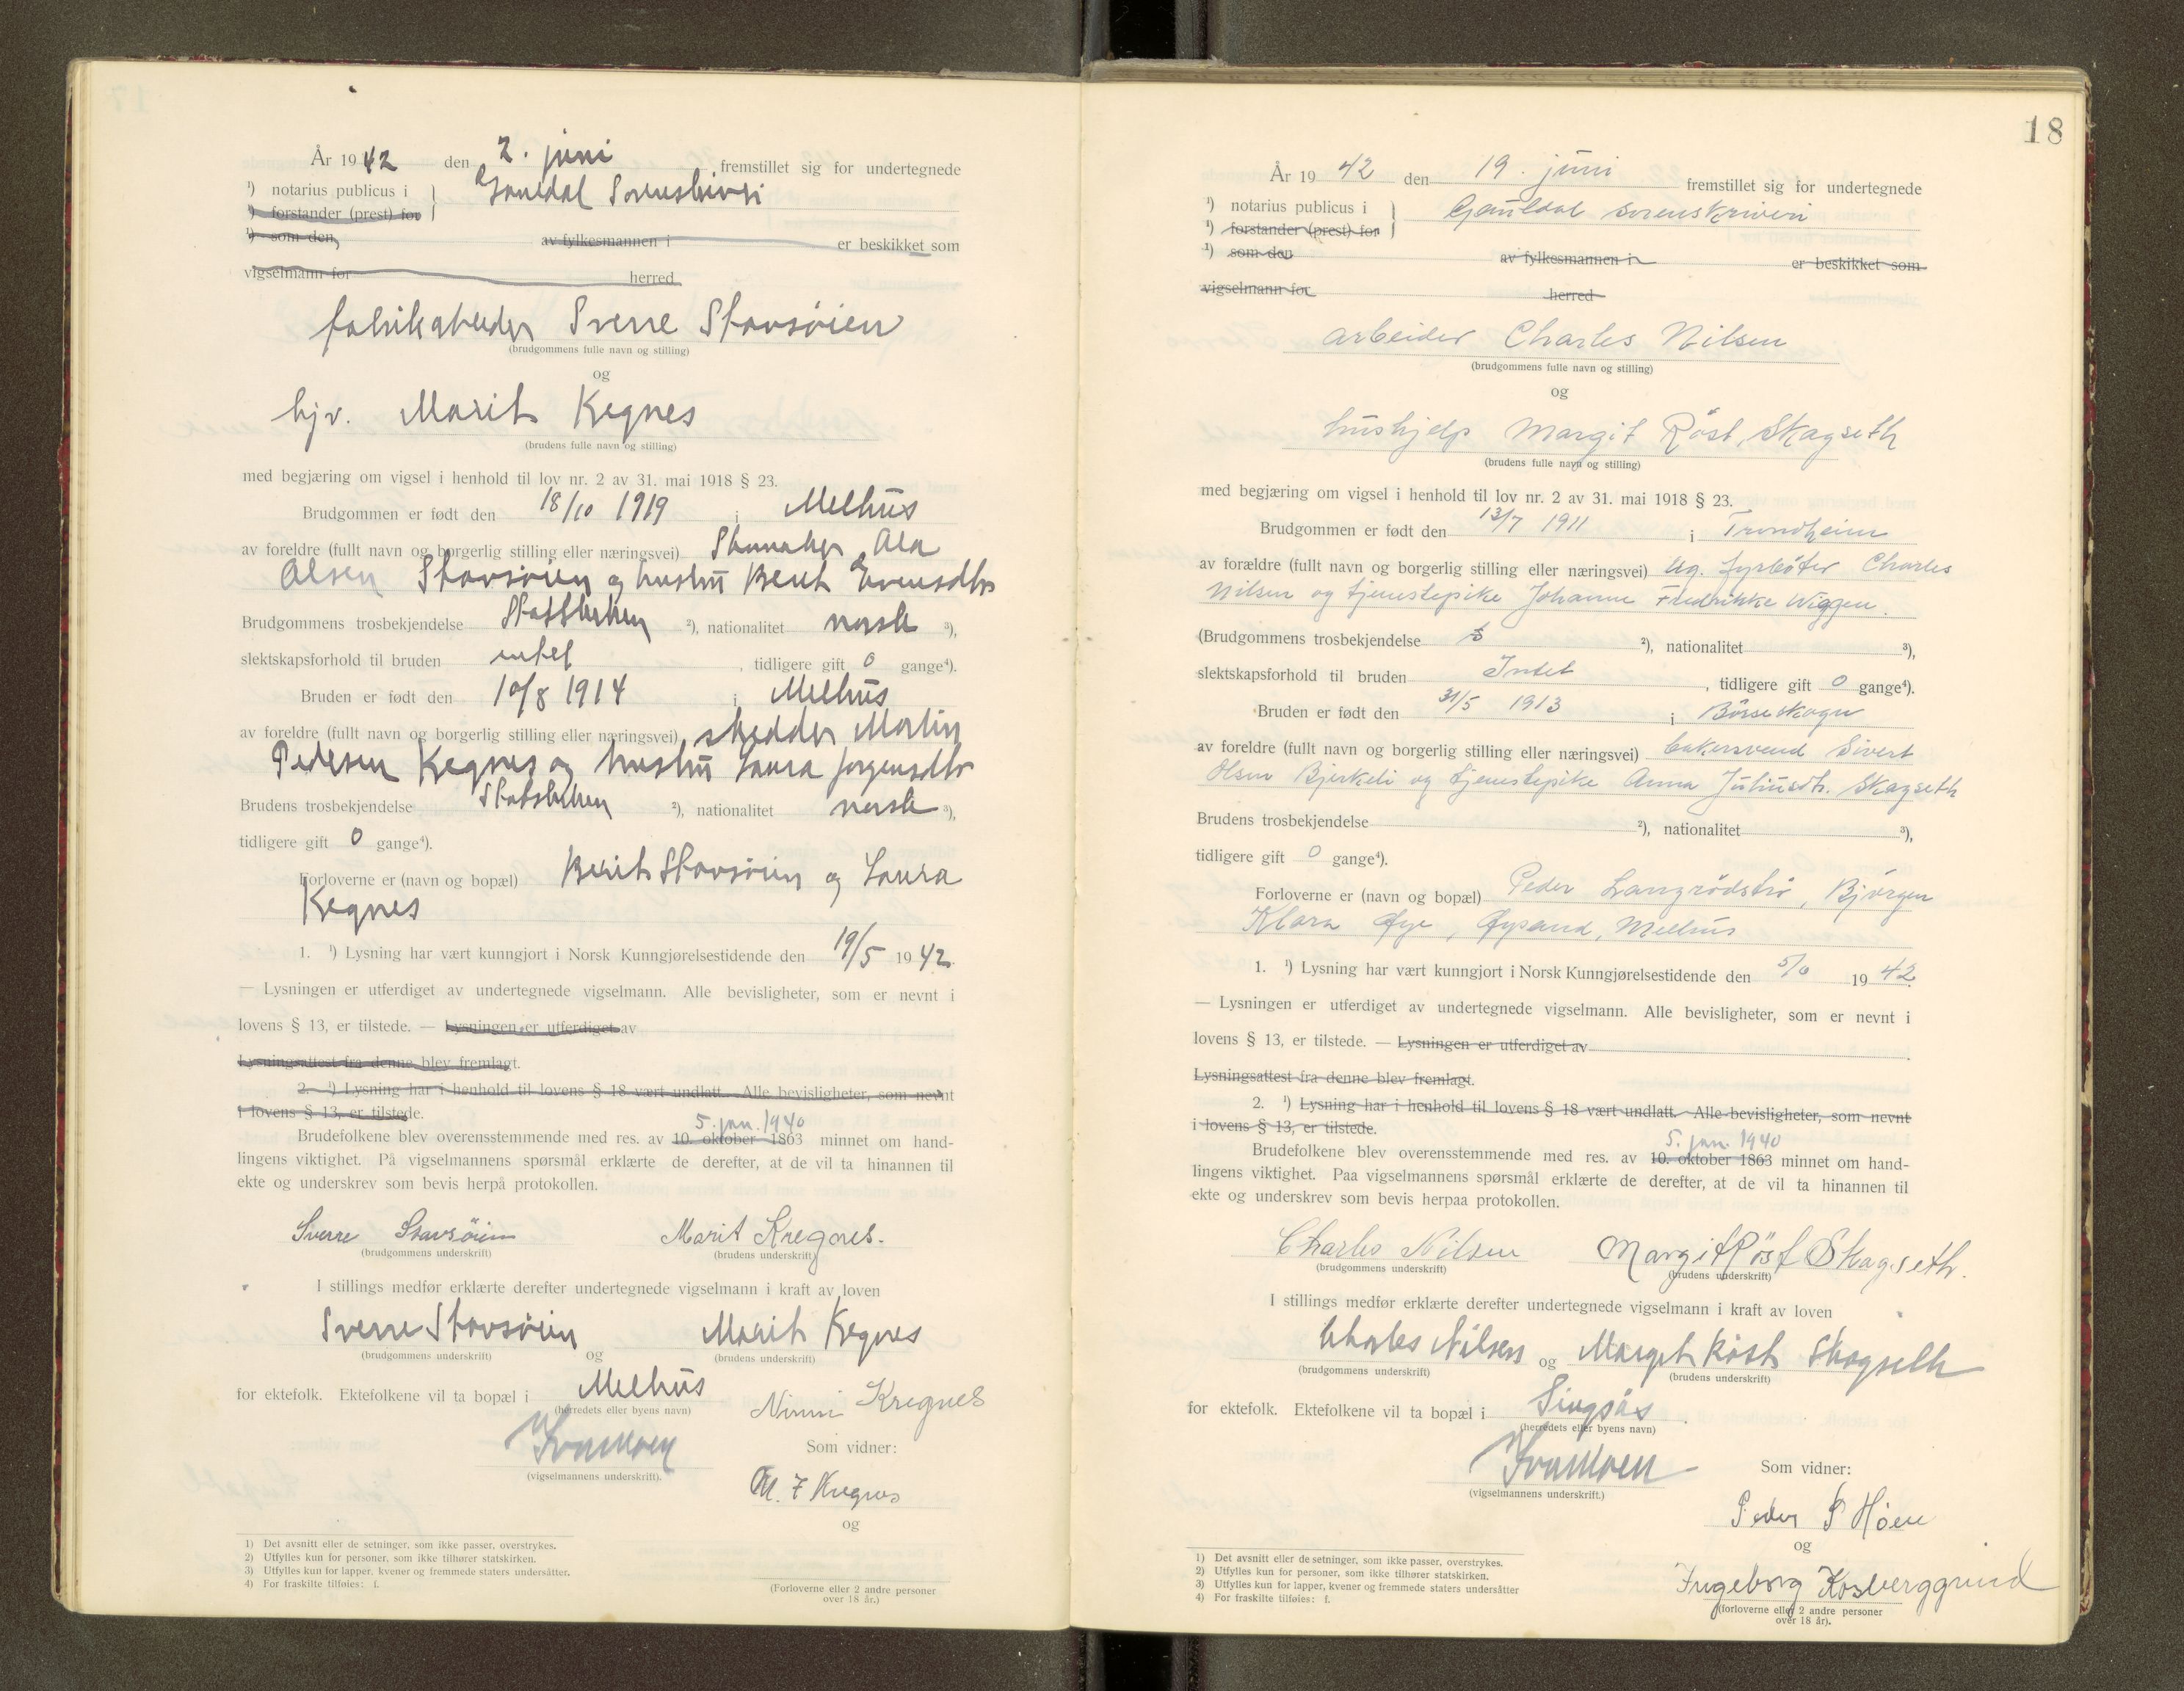 År 1942 den 2. juni fremstillet sig for undertegnede
¹) notarius publicus i } Gauldal Sorenskriveri
¹) forstander (prest) for
¹) som den av fylkesmannen i er beskikket som
vigselmann for herred
fabrikarbeider Sverre Stavsøien
(brudgommens fulle navn og stilling)
og
hjv. Marit Kregnes
(brudens fulle navn og stilling)
med begjæring om vigsel i henhold til lov nr. 2 av 31. mai 1918 § 23.
Brudgommen er født den 18/10 1919 i Melhus
av foreldre (fullt navn og borgerlig stilling eller næringsvei) Ola
Olsen Stavsøien og hustru Berit Evensdtr
Brudgommens trosbekjendelse Statskirken ²), nationalitet norsk ³),
slektskapsforhold til bruden intet, tidligere gift 0 gange⁴).
Bruden er født den 10/8 1914 i Melhus
av foreldre (fullt navn og borgerlig stilling eller næringsvei) skredder Martin
Pedersen Kregnes og hustru Laura Jørgensdtr
Brudens trosbekjendelse Statskirken ²), nationalitet norsk ³),
tidligere gift 0 gange⁴).
Forloverne er (navn og bopæl) Berit Stavsøien og Laura
Kregnes
1. ¹) Lysning har vært kunngjort i Norsk Kunngjørelsestidende den 19/5 1942.
— Lysningen er utferdiget av undertegnede vigselmann. Alle bevisligheter, som er nevnt i
lovens § 13, er tilstede. — Lysningen er utferdiget av
Lysningsattest fra denne blev fremlagt.
2. ¹) Lysning har i henhold til lovens § 18 vært undlatt. Alle bevisligheter, som nevnt
i lovens § 13, er tilstede.
5. jan. 1940
Brudefolkene blev overensstemmende med res. av 10. oktober 1863 minnet om hand-
lingens viktighet. På vigselmannens spørsmål erklærte de derefter, at de vil ta hinannen til
ekte og underskrev som bevis herpå protokollen.
Sverre Stavsøien Marit Kregnes.
(brudgommens underskrift) (brudens underskrift)
I stillings medfør erklærte derefter undertegnede vigselmann i kraft av loven
Sverre Stavsøien og Marit Kregnes
(brudgommens underskrift) (brudens underskrift)
for ektefolk. Ektefolkene vil ta bopæl i Melhus
(herredets eller byens navn)
Ninni Kregnes
(vigselmannens underskrift).
Som vidner:
M. Kregnes
og
(Forloverne eller 2 andre personer
over 18 år.)
1) Det avsnitt eller de setninger, som ikke passer, overstrykes.
2) Utfylles kun for personer, som ikke tilhører statskirken.
3) Utfylles kun for lapper, kvener og fremmede staters undersåtter.
4) For fraskilte tilføies: f.
18
År 1942 den 19. juni fremstillet sig for undertegnede
¹) notarius publicus i } Gauldal sorenskriveri
¹) forstander (prest) for
¹) som den av fylkesmannen i er beskikket som
vigselmann for herred
arbeider Charles Nilsen
(brudgommens fulle navn og stilling)
og
hushjelp Margit Røst Skagseth
(brudens fulle navn og stilling)
med begjæring om vigsel i henhold til lov nr. 2 av 31. mai 1918 § 23.
Brudgommen er født den 13/7 1911 i Trondheim
av forældre (fullt navn og borgerlig stilling eller næringsvei) ug. fyrbøter Charles
Nilsen og tjenestepike Johanne Fredrikke Wiggen.
(Brudgommens trosbekjendelse ²), nationalitet ³),
slektskapsforhold til bruden Intet, tidligere gift 0 gange⁴).
Bruden er født den 31/5 1913 i Børseskogn
av foreldre (fullt navn og borgerlig stilling eller næringsvei) bakersvend Sivert
Olsen Bjerkeli og tjenestepike Anna Juliusdtr. Skagseth
Brudens trosbekjendelse ²), nationalitet ³),
tidligere gift 0 gange⁴).
Forloverne er (navn og bopæl) Peder Langrødstrø, Bjørgen
Klara Øye, Øysand, Melhus
1. ¹) Lysning har vært kunngjort i Norsk Kunngjørelsestidende den 5/6 1942.
— Lysningen er utferdiget av undertegnede vigselmann. Alle bevisligheter, som er nevnt i
lovens § 13, er tilstede. — Lysningen er utferdiget av
Lysningsattest fra denne blev fremlagt.
2. ¹) Lysning har i henhold til lovens § 18 vært undlatt. Alle bevisligheter, som nevnt
i lovens § 13, er tilstede.
5. jan. 1940
Brudefolkene blev overensstemmende med res. av 10. oktober 1863 minnet om hand-
lingens viktighet. Paa vigselmannens spørsmål erklærte de derefter, at de vil ta hinannen til
ekte og underskrev som bevis herpaa protokollen.
Charles Nilsen Margit Røst Skagseth.
(brudgommens underskrift) (brudens underskrift)
I stillings medfør erklærte derefter undertegnede vigselmann i kraft av loven
Charles Nilsen og Margit Røst Skagseth
(brudgommens underskrift) (brudens underskrift)
for ektefolk. Ektefolkene vil ta bopæl i Singsås
(herredets eller byens navn)
(vigselmannens underskrift.)
Som vidner:
Peder P Høen
og
Ingeborg Kosberggrind
(forloverne eller 2 andre personer
over 18 år).
1) Det avsnitt eller de setninger, som ikke passer, overstrykes.
2) Utfylles kun for personer, som ikke tilhører statskirken.
3) Utfylles kun for lapper, kvener og fremmede staters undersåtter
4) For fraskilte tilføies: f.